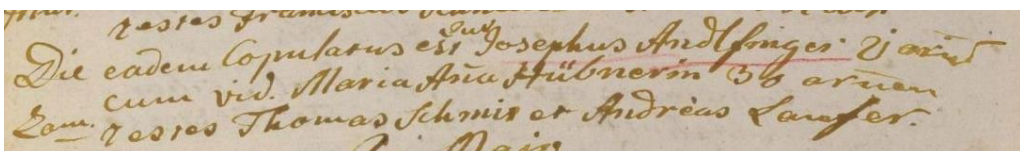 testes Franciscus
Die eadem Copulatus est Juv. Josephus Andlfinger
cum vid. Maria Aña Hübnerin 30 arũm
Zam. testes Thomas Schmit et Andreas Laufer.